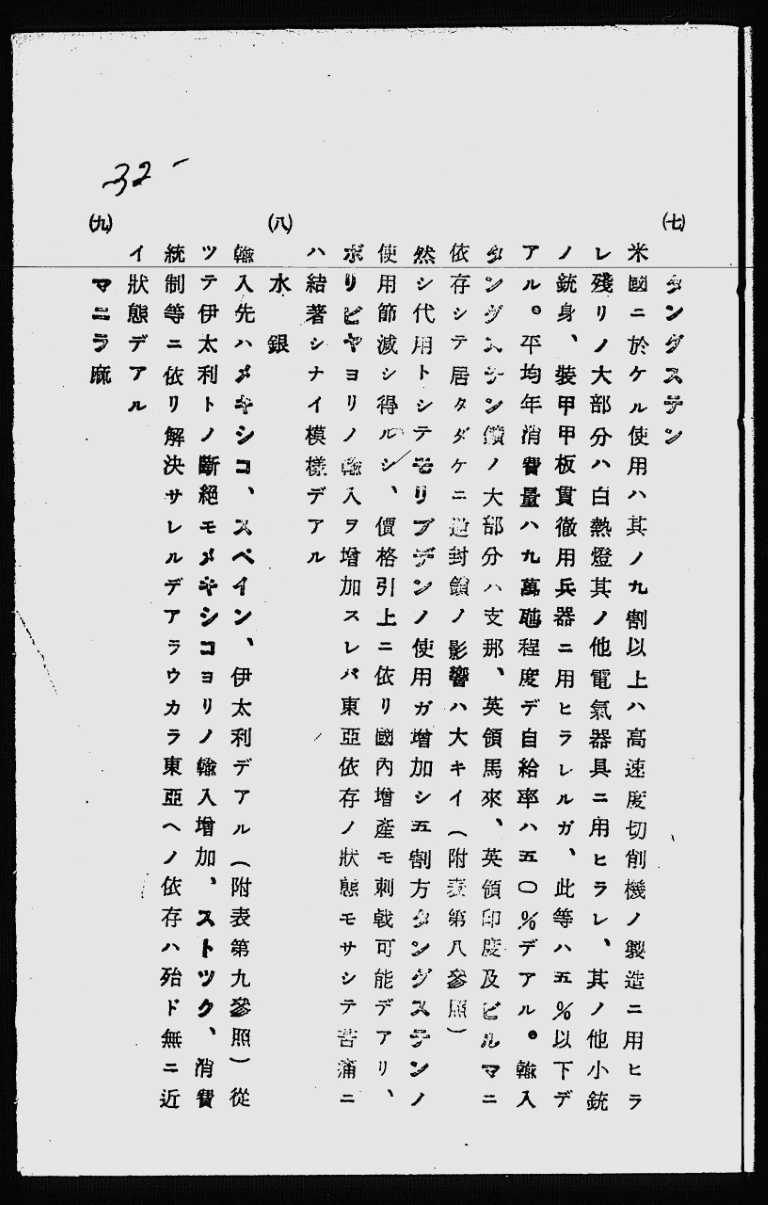 32-
(七) タングステン
米國ニ於ケル使用ハ其ノ九割以上ハ高速度切削機ノ製造ニ用ヒラ
レ殘リノ大部分ハ白熱燈其ノ他電氣器具ニ用ヒラレ、其ノ他小銃
ノ銃身、裝甲甲板貫徹用兵器ニ用ヒラレルガ、此等ハ五%以下デ
アル。平均年消費量ハ九萬瓲程度デ自給率ハ五〇%デアル。輸入
タングステン鑛ノ大部分ハ支那、英領馬來、英領印度及ビルマニ
依存シテ居タダケニ逆封鎖ノ影響ハ大キイ(附表第八參照)
然シ代用トシテモリブデンノ使用ガ增加シ五割方タングステンノ
使用節減シ得ルシ、價格引上ニ依リ國內增產モ刺戟可能デアリ、
ボリビヤヨリノ輸入ヲ增加スレバ東亞依存ノ狀態モサシテ苦痛ニ
ハ結著シナイ模樣デアル
(八) 水銀
輸入先ハメキシコ、スペイン、伊太利デアル(附表第九參照)從
ツテ伊太利トノ斷絕モメキシコヨリノ輸入增加、ストツク、消費
統制等ニ依リ解決サレルデアラウカラ東亞ヘノ依存ハ殆ド無ニ近
イ狀態デアル
(九) マニラ麻